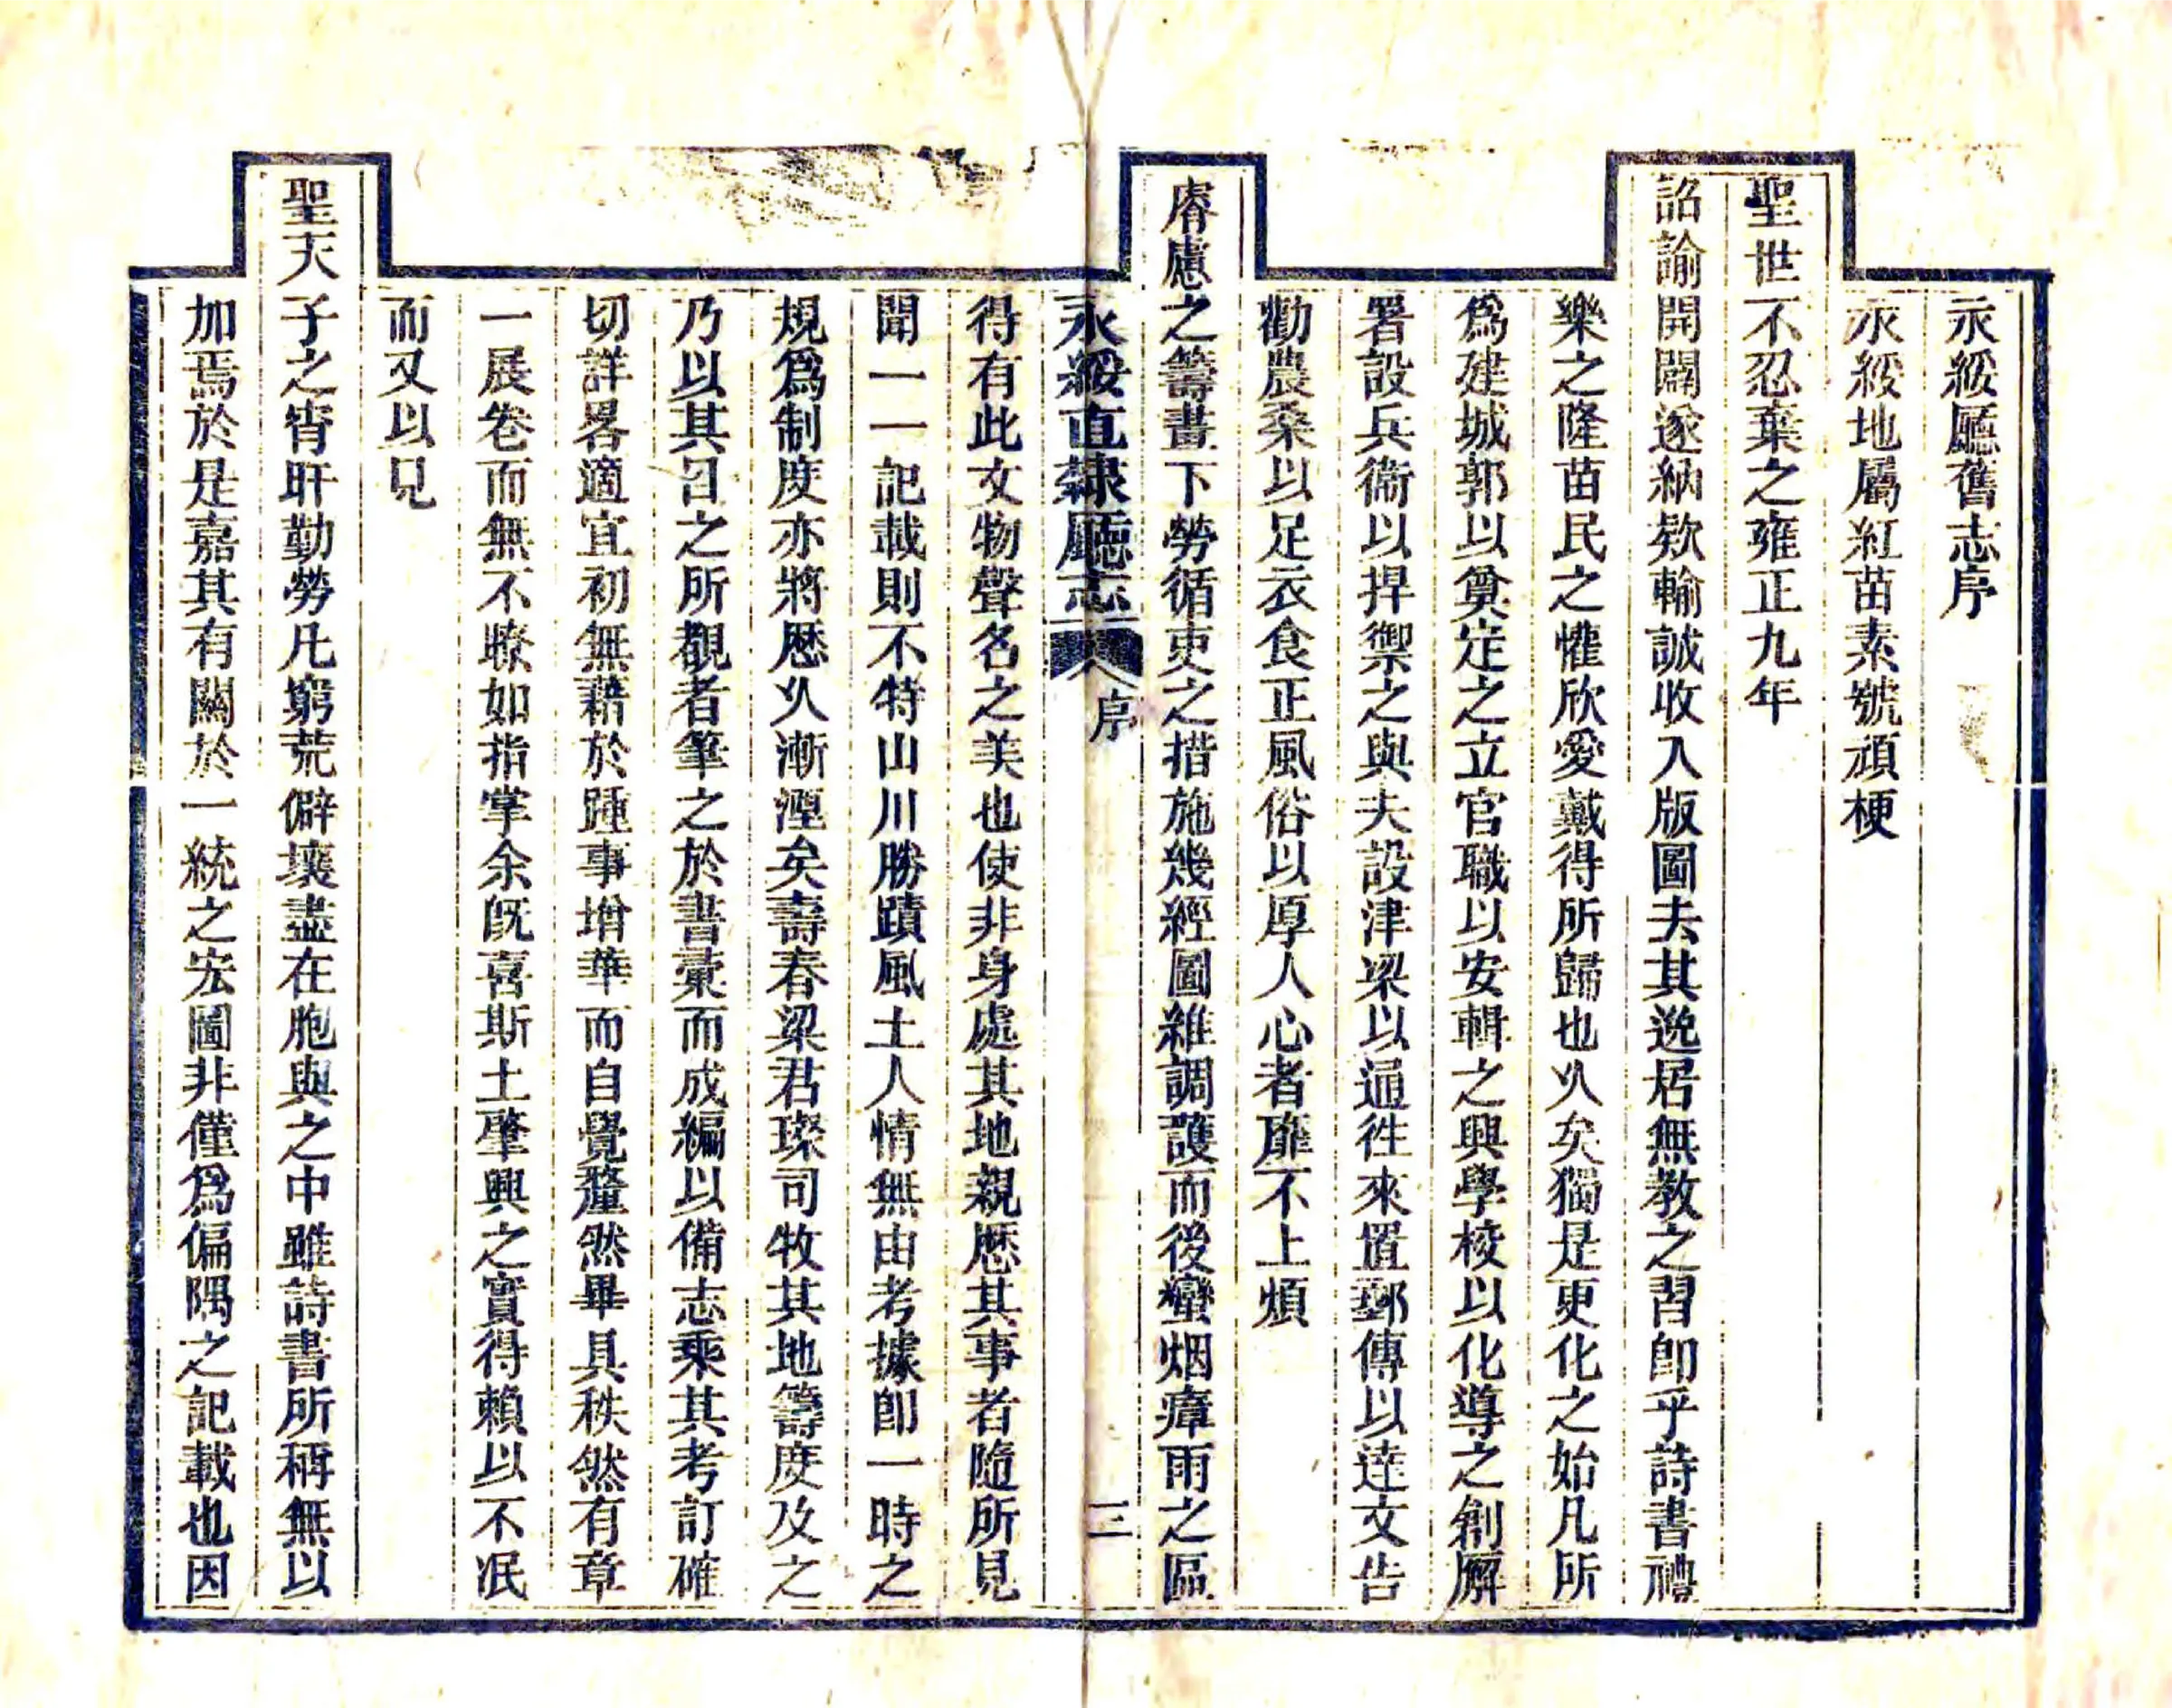 永綏廳舊志序
永綏地屬紅苗素號頑梗
聖世不忍棄之雍正九年
詔諭開闢遂納欵輸誠收入版圖去其逸居無教之習卽乎詩書禮
樂之隆苗民之懽欣愛戴得所歸也乆矣獨是更化之始凡所
爲建城郭以奠定之立官職以安輯之興學校以化導之創廨
署設兵衞以捍禦之與夫設津梁以通徃來置郵傳以逹文告
勸農桑以足衣食正風俗以厚人心者靡不上煩
睿慮之籌畫下勞循吏之措施幾經圖維調護而後蠻烟瘴雨之區
永綏直隸廳志 序 三
得有此文物聲名之美也使非身處其地親歷其事者隨所見
聞一一記載則不特山川勝蹟風土人情無由考據卽一時之
規爲制度亦將歷乆漸湮矣壽春梁君璨司牧其地籌度及之
乃以其日之所覩者筆之於書彙而成編以備志乘其考訂確
切詳畧適宜初無藉於踵事增華而自覺釐然畢具秩然有章
一展卷而無不瞭如指掌余旣喜斯土肇興之實得賴以不泯
而又以見
聖天子之宵旰勤勞凡窮荒僻壤盡在胞與之中雖詩書所稱無以
加焉於是嘉其有關於一統之宏圖非僅爲偏隅之記載也因